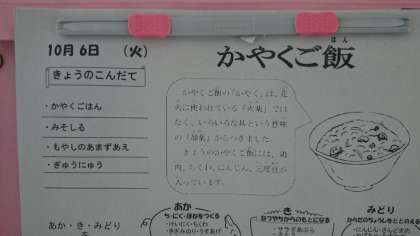 10月6日 （火）
かやくご飯
はん
きょうのこんだて
・かやくごはん
・みそしる
・もやしのあまずあえ
・ぎゅうにゅう
かやくご飯の「かやく」は、花
火に使われている「火薬」では
なく、いろいろな具という意味
の「加薬」からつきました。
きょうのかやくご飯には、鶏
肉、ちくわ、にんじん、三度豆が
入っています。
あか・き・みどり
を
あか
ち・にく・ほねをつくる
・けいにく・ちくわ
き
みどり